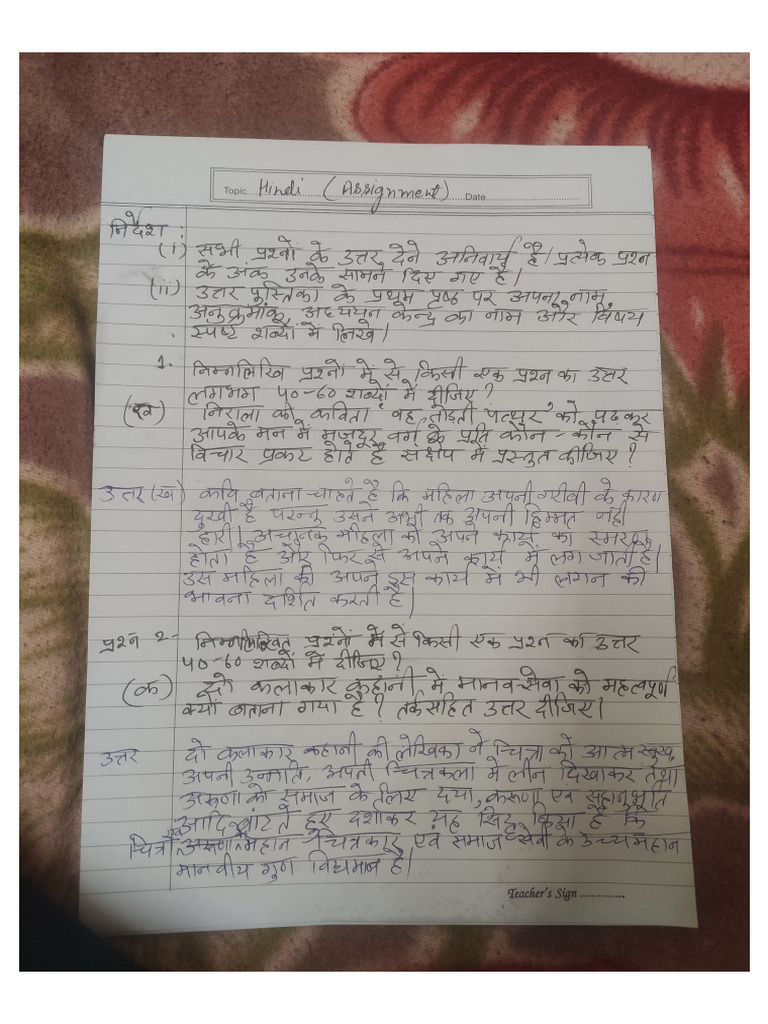 Topic Hindi (Assignment) Date
निर्देश :
(i) सभी प्रश्नों के उत्तर देने अनिवार्य है। प्रत्येक प्रश्न
के अंक उनके सामने दिए गए है।
(ii) उत्तर पुस्तिका के प्रथम पृष्ठ पर अपना नाम,
अनुक्रमांक, अध्ययन केन्द्र का नाम और विषय
स्पष्ट शब्दों में लिखे।
1. निम्नलिखि प्रश्नों में से किसी एक प्रश्न का उत्तर
लगभग 40-60 शब्दों में दीजिए?
(ख) निराला की कविता 'वह तोड़ती पत्थर' को पढकर
आपके मन में मजदूर वर्ग के प्रति कौन-कौन से
विचार प्रकट होते है संक्षेप में प्रस्तुत कीजिए?
उत्तर (ख) कवि बताना चाहते है कि महिला अपनी गरीबी के कारण
दुखी है परन्तु उसने अभी तक अपनी हिम्मत नही
हारी। अचानक महिला को अपने कार्य का स्मरण
होता है और फिर से अपने कार्य में लग जाती है।
उस महिला की अपने इस कार्य में भी लगन की
भावना दर्शित करती है।
प्रश्न 2- निम्नलिखित प्रश्नों में से किसी एक प्रश्न का उत्तर
40-60 शब्दों में दीजिए?
(क) दो कलाकार कहानी में मानव-सेवा को महत्वपूर्ण
क्यों बताना गया है? तर्कसहित उत्तर दीजिए।
उत्तर दो कलाकार कहानी की लेखिका ने चित्रा को आत्मसुख,
अपनी उन्नति, अपनी चित्रकला में लीन दिखाकर तथा
अरूणा को समाज के लिए दया, करूणा एवं सहानुभूति
आदि बांटते हुए दर्शाकर यह सिद्ध किआ है कि
चित्रा एवं अरूणा में महान चित्रकार एवं समाज सेवी के उच्च महान
मानवीय गुण विद्यमान है।
Teacher's Sign